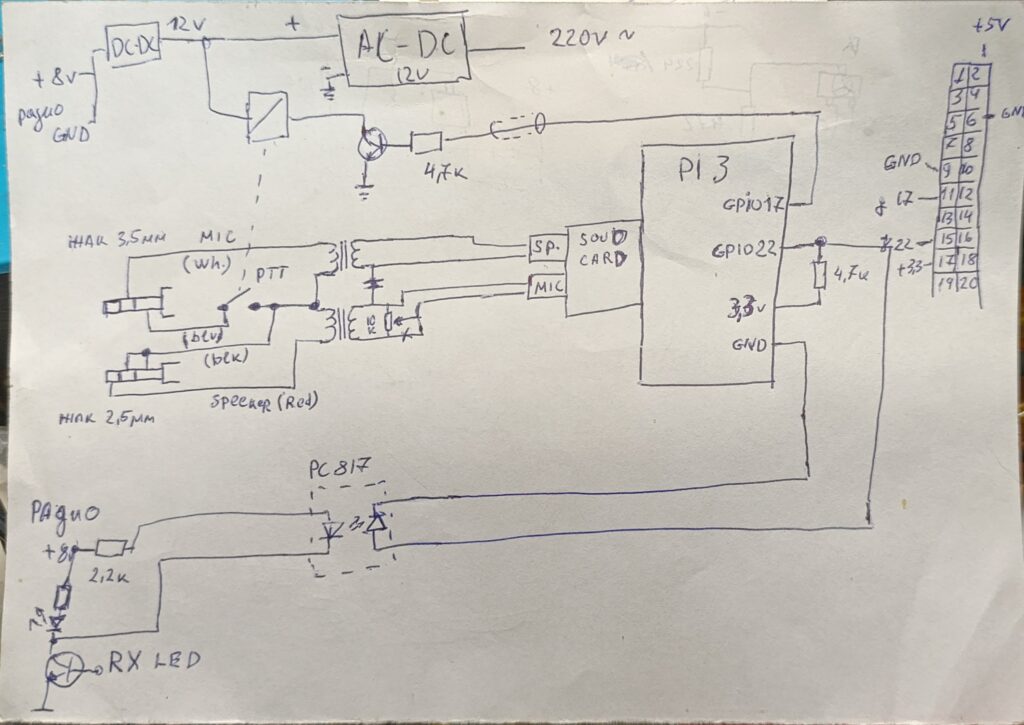 12V
+
DC-DC
AC-DC
12V
220V ~
+8V
РАДИО
GND
4,7K
PI 3
GPIO17
GPIO22
3,3V
GND
4,7K
+5V
1 2
3 4
5 6
GND
7 8
GND
9 10
g 17
11 12
13 14
22
15 16
+3,3
17 18
19 20
ЖАК 3,5мм
MIC
(Wh.)
PTT
SP.
SOUD
CARD
MIC
10K
(blk)
ЖАК 2,5мм
Speeker (Red)
PC 817
РАДИО
+8
2,2K
RX LED